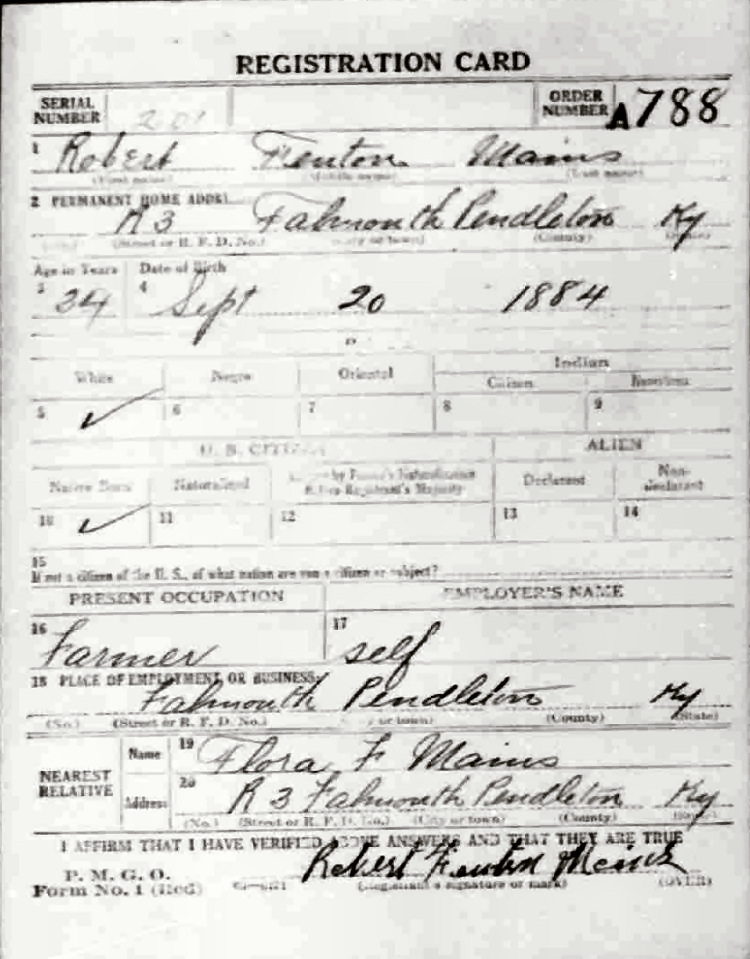 REGISTRATION CARD
SERIAL NUMBER 201 ORDER NUMBER A788
1 Robert Fenton Mains
(First name) (Middle name) (Last name)
2 PERMANENT HOME ADDR
R 3 Falmouth Pendleton Ky
(Street or R. F. D. No.) (City or town) (County)
Age in Years Date of Birth
3 34 4 Sept 20 1884
White Negro Oriental Indian
Citizen Noncitizen
5 ✓ 6 7 8 9
U. S. CITIZEN ALIEN
Native Born Naturalized by Father's Naturalization Before Registrant's Majority Declarant Non-declarant
10 ✓ 11 12 13 14
15
If not a citizen of the U. S., of what nation are you a citizen or subject?
PRESENT OCCUPATION EMPLOYER'S NAME
16 Farmer 17 self
18 PLACE OF EMPLOYMENT OR BUSINESS:
Falmouth Pendleton Ky
(No.) (Street or R. F. D. No.) (City or town) (County) (State)
NEAREST RELATIVE Name 19 Flora F Mains
Address 20 R 3 Falmouth Pendleton Ky
(No.) (Street or R. F. D. No.) (City or town) (County) (State)
I AFFIRM THAT I HAVE VERIFIED ABOVE ANSWERS AND THAT THEY ARE TRUE
P. M. G. O.
Form No. 1 (Red) Robert Fenton Mains
(Registrant's signature or mark) (OVER)